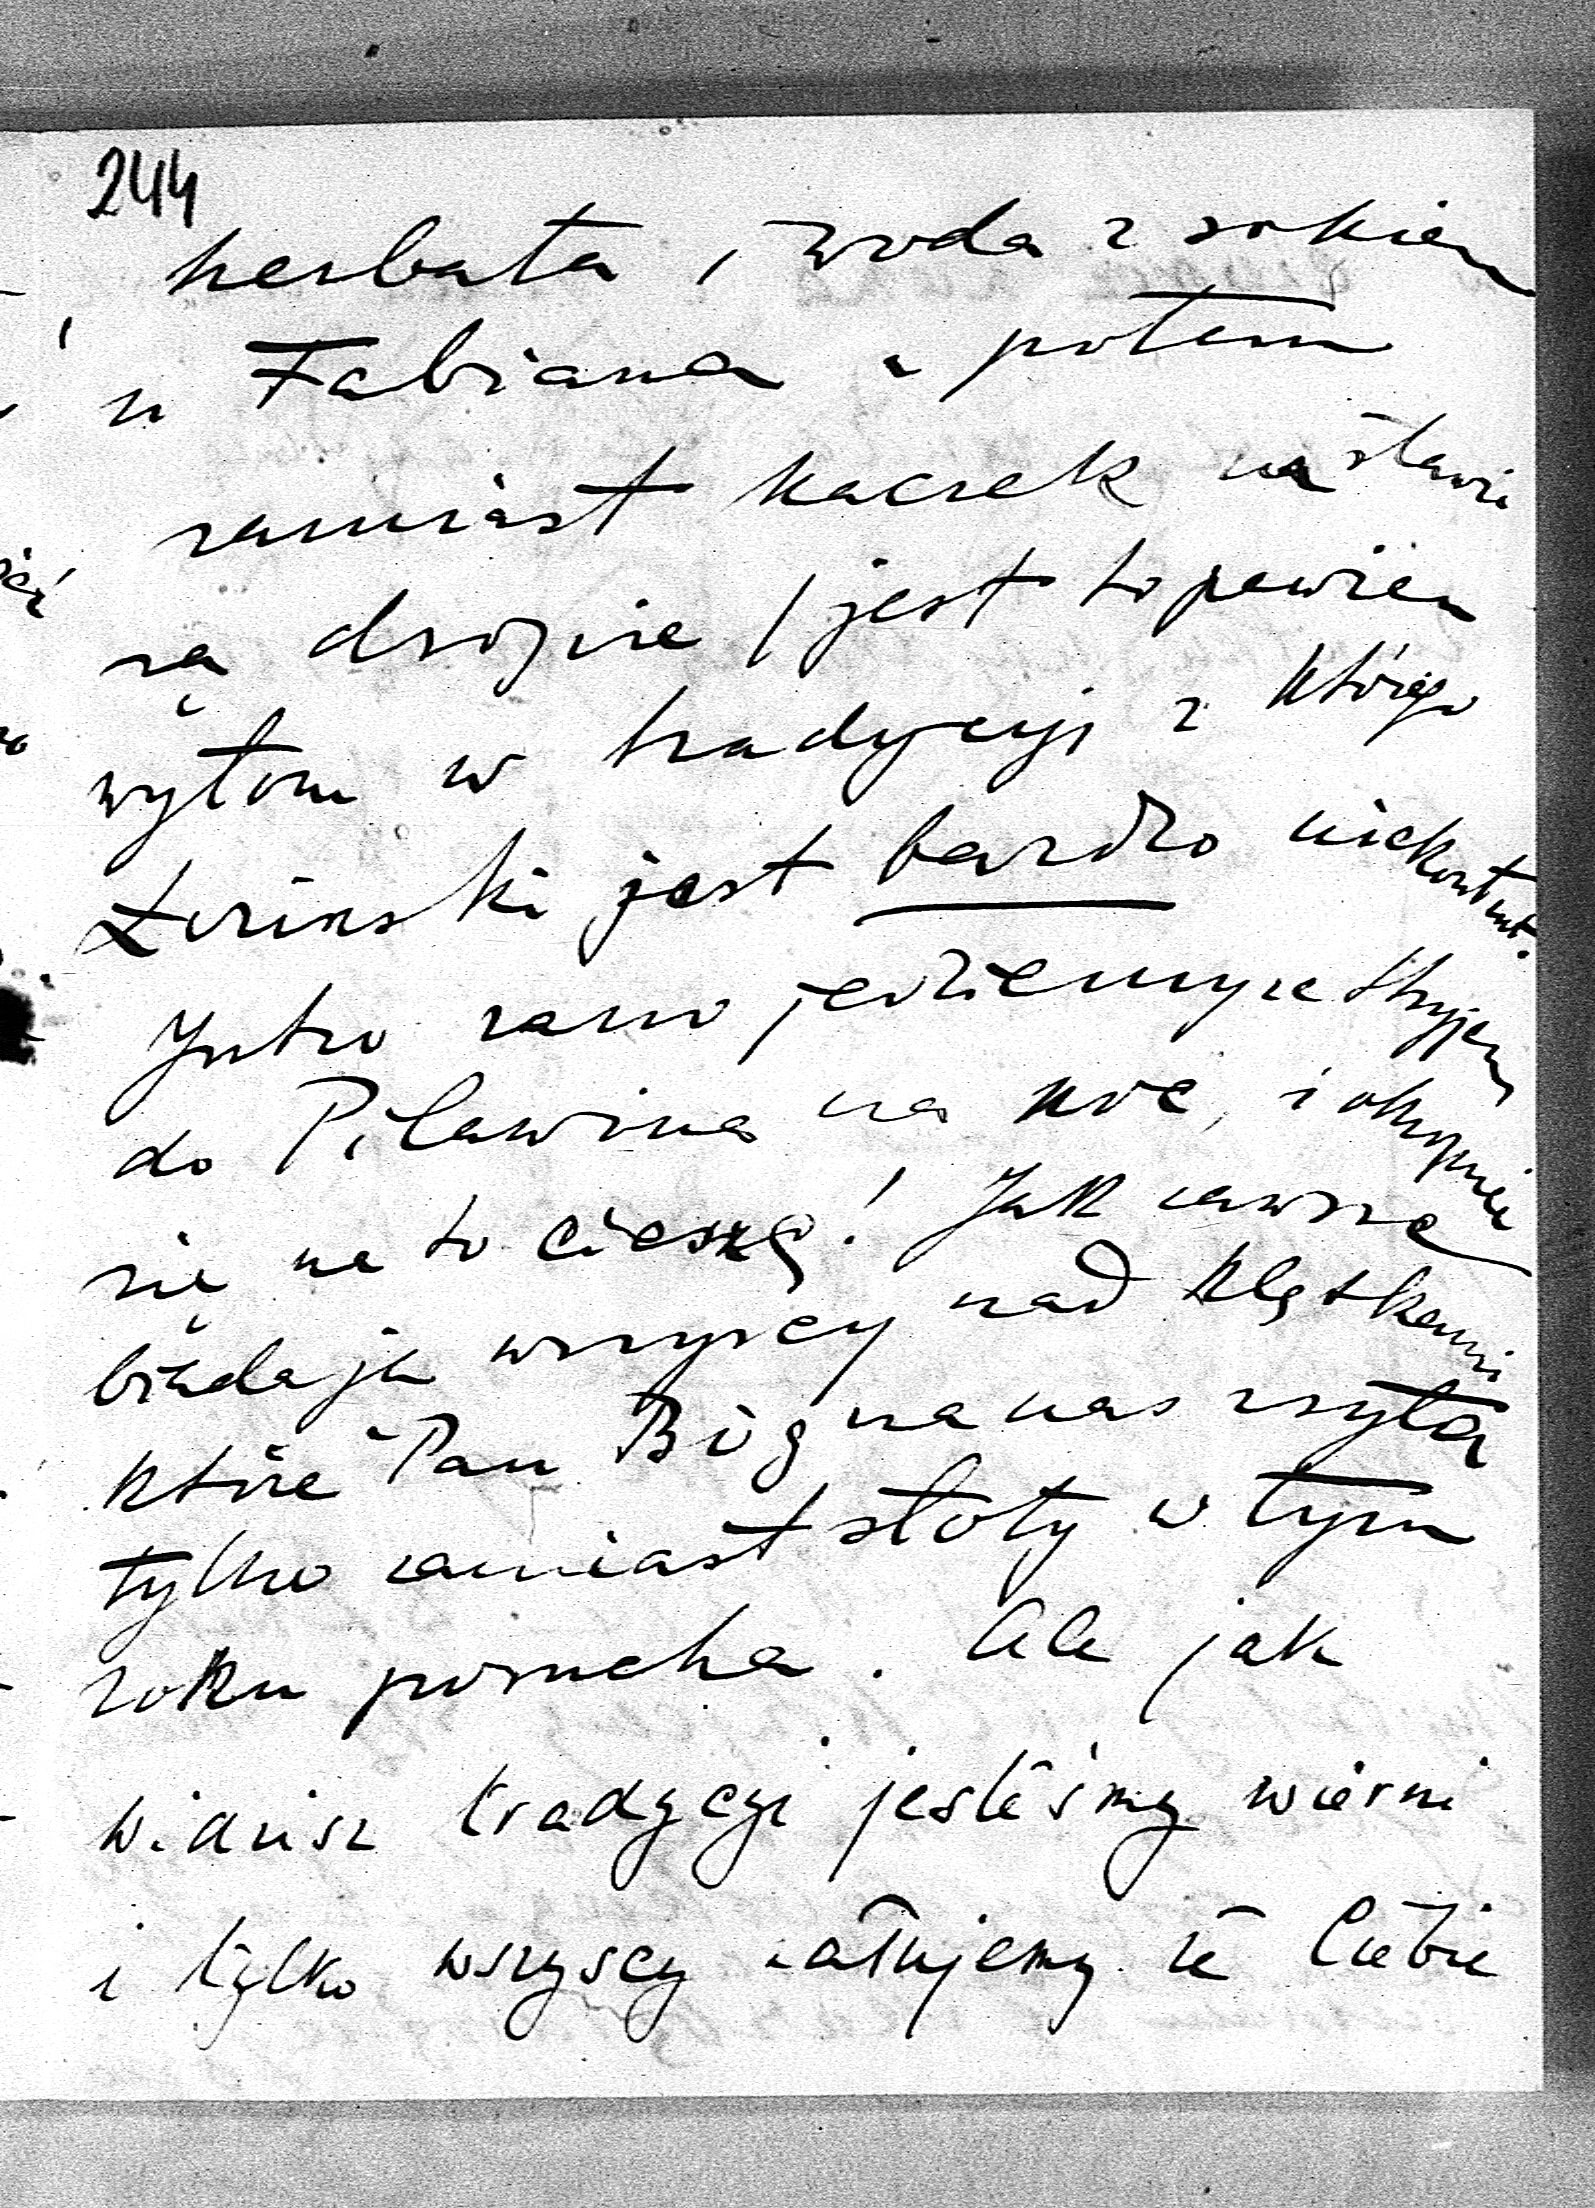 244
herbata, woda z sokiem
u Fabiana a potem
zamiast kaczek na stawie
są dropie / jest to pewien
wyłom w tradycyi z którego
Łoziński jest bardzo niekontent.
Jutro rano jedziemy ze Stryjem
do Piławina na noc, i okropnie
się na to cieszę! Jak zawsze
biadają wszyscy nad klęskami
które Pan Bóg na nas zsyła
tylko zamiast słoty w tym
roku posucha. Ale jak
widzisz tradycyi jesteśmy wierni
i tylko wszyscy żałujemy że Ciebie